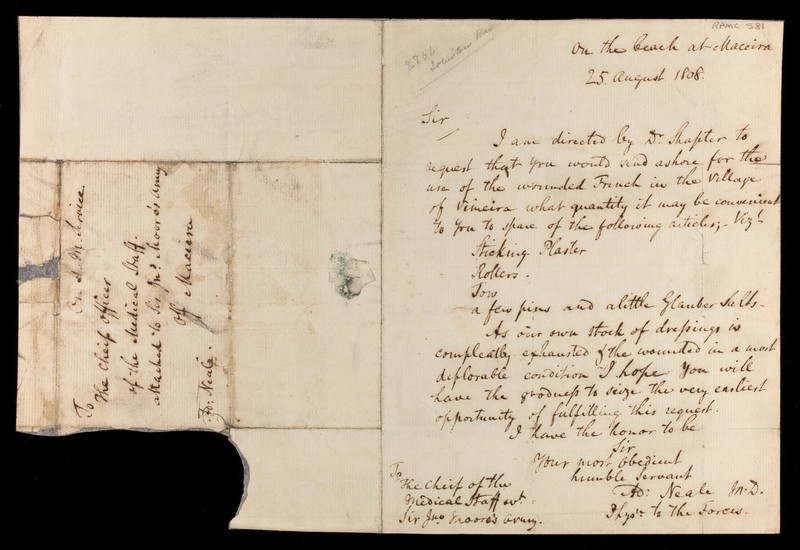 RAMC 581
On the beach at Maceira
25 August 1808.
Sir
I am directed by Dr Shapter to
request that you would send ashore for the
use of the wounded French in the village
of Vimeira what quantity it may be convenient
to you to spare of the following articles;- Vizt
Sticking Plaster
Rollers -
Tow
a few pins and a little Glauber Salts -
As our own stock of dressings is
compleatly exhausted & the wounded in a most
deplorable condition I hope you will
have the goodness to seize the very earliest
opportunity of fulfilling this request.
I have the honor to be
Sir
Your most obedient
humble Servant
Ad: Neale M.D.
Physn to the Forces.
To
The Chief of the
Medical Staff wt
Sir Jno Moore's Army.
On H. M. Service
To
The Chief Officer
of the Medical Staff.
attached to Sir Jno Moore's Army
Off Maceira
Ad: Neale.